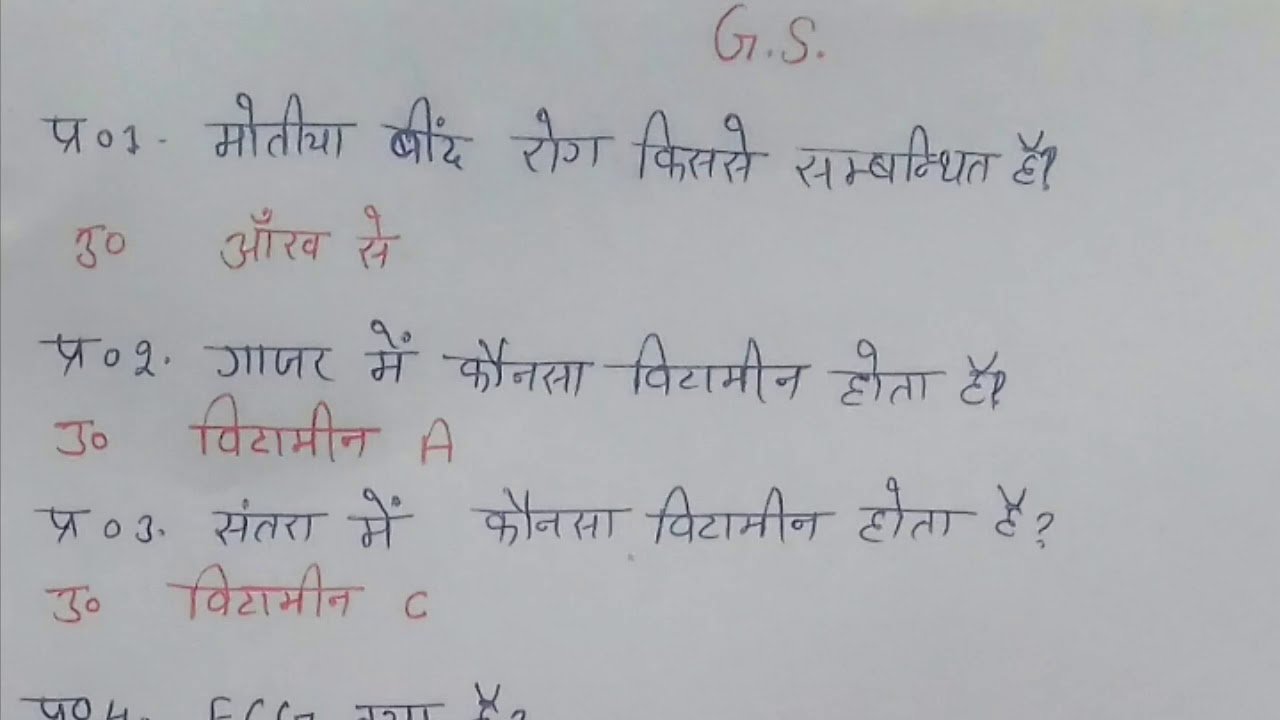 G.S.
प्र०१. मोतीया बींद रोग किससे सम्बन्धित है?
उ० आँख से
प्र०२. गाजर में कौनसा विटामीन होता है?
उ० विटामीन A
प्र०३. संतरा में कौनसा विटामीन होता है?
उ० विटामीन C
प्र०४. ECG क्या है?